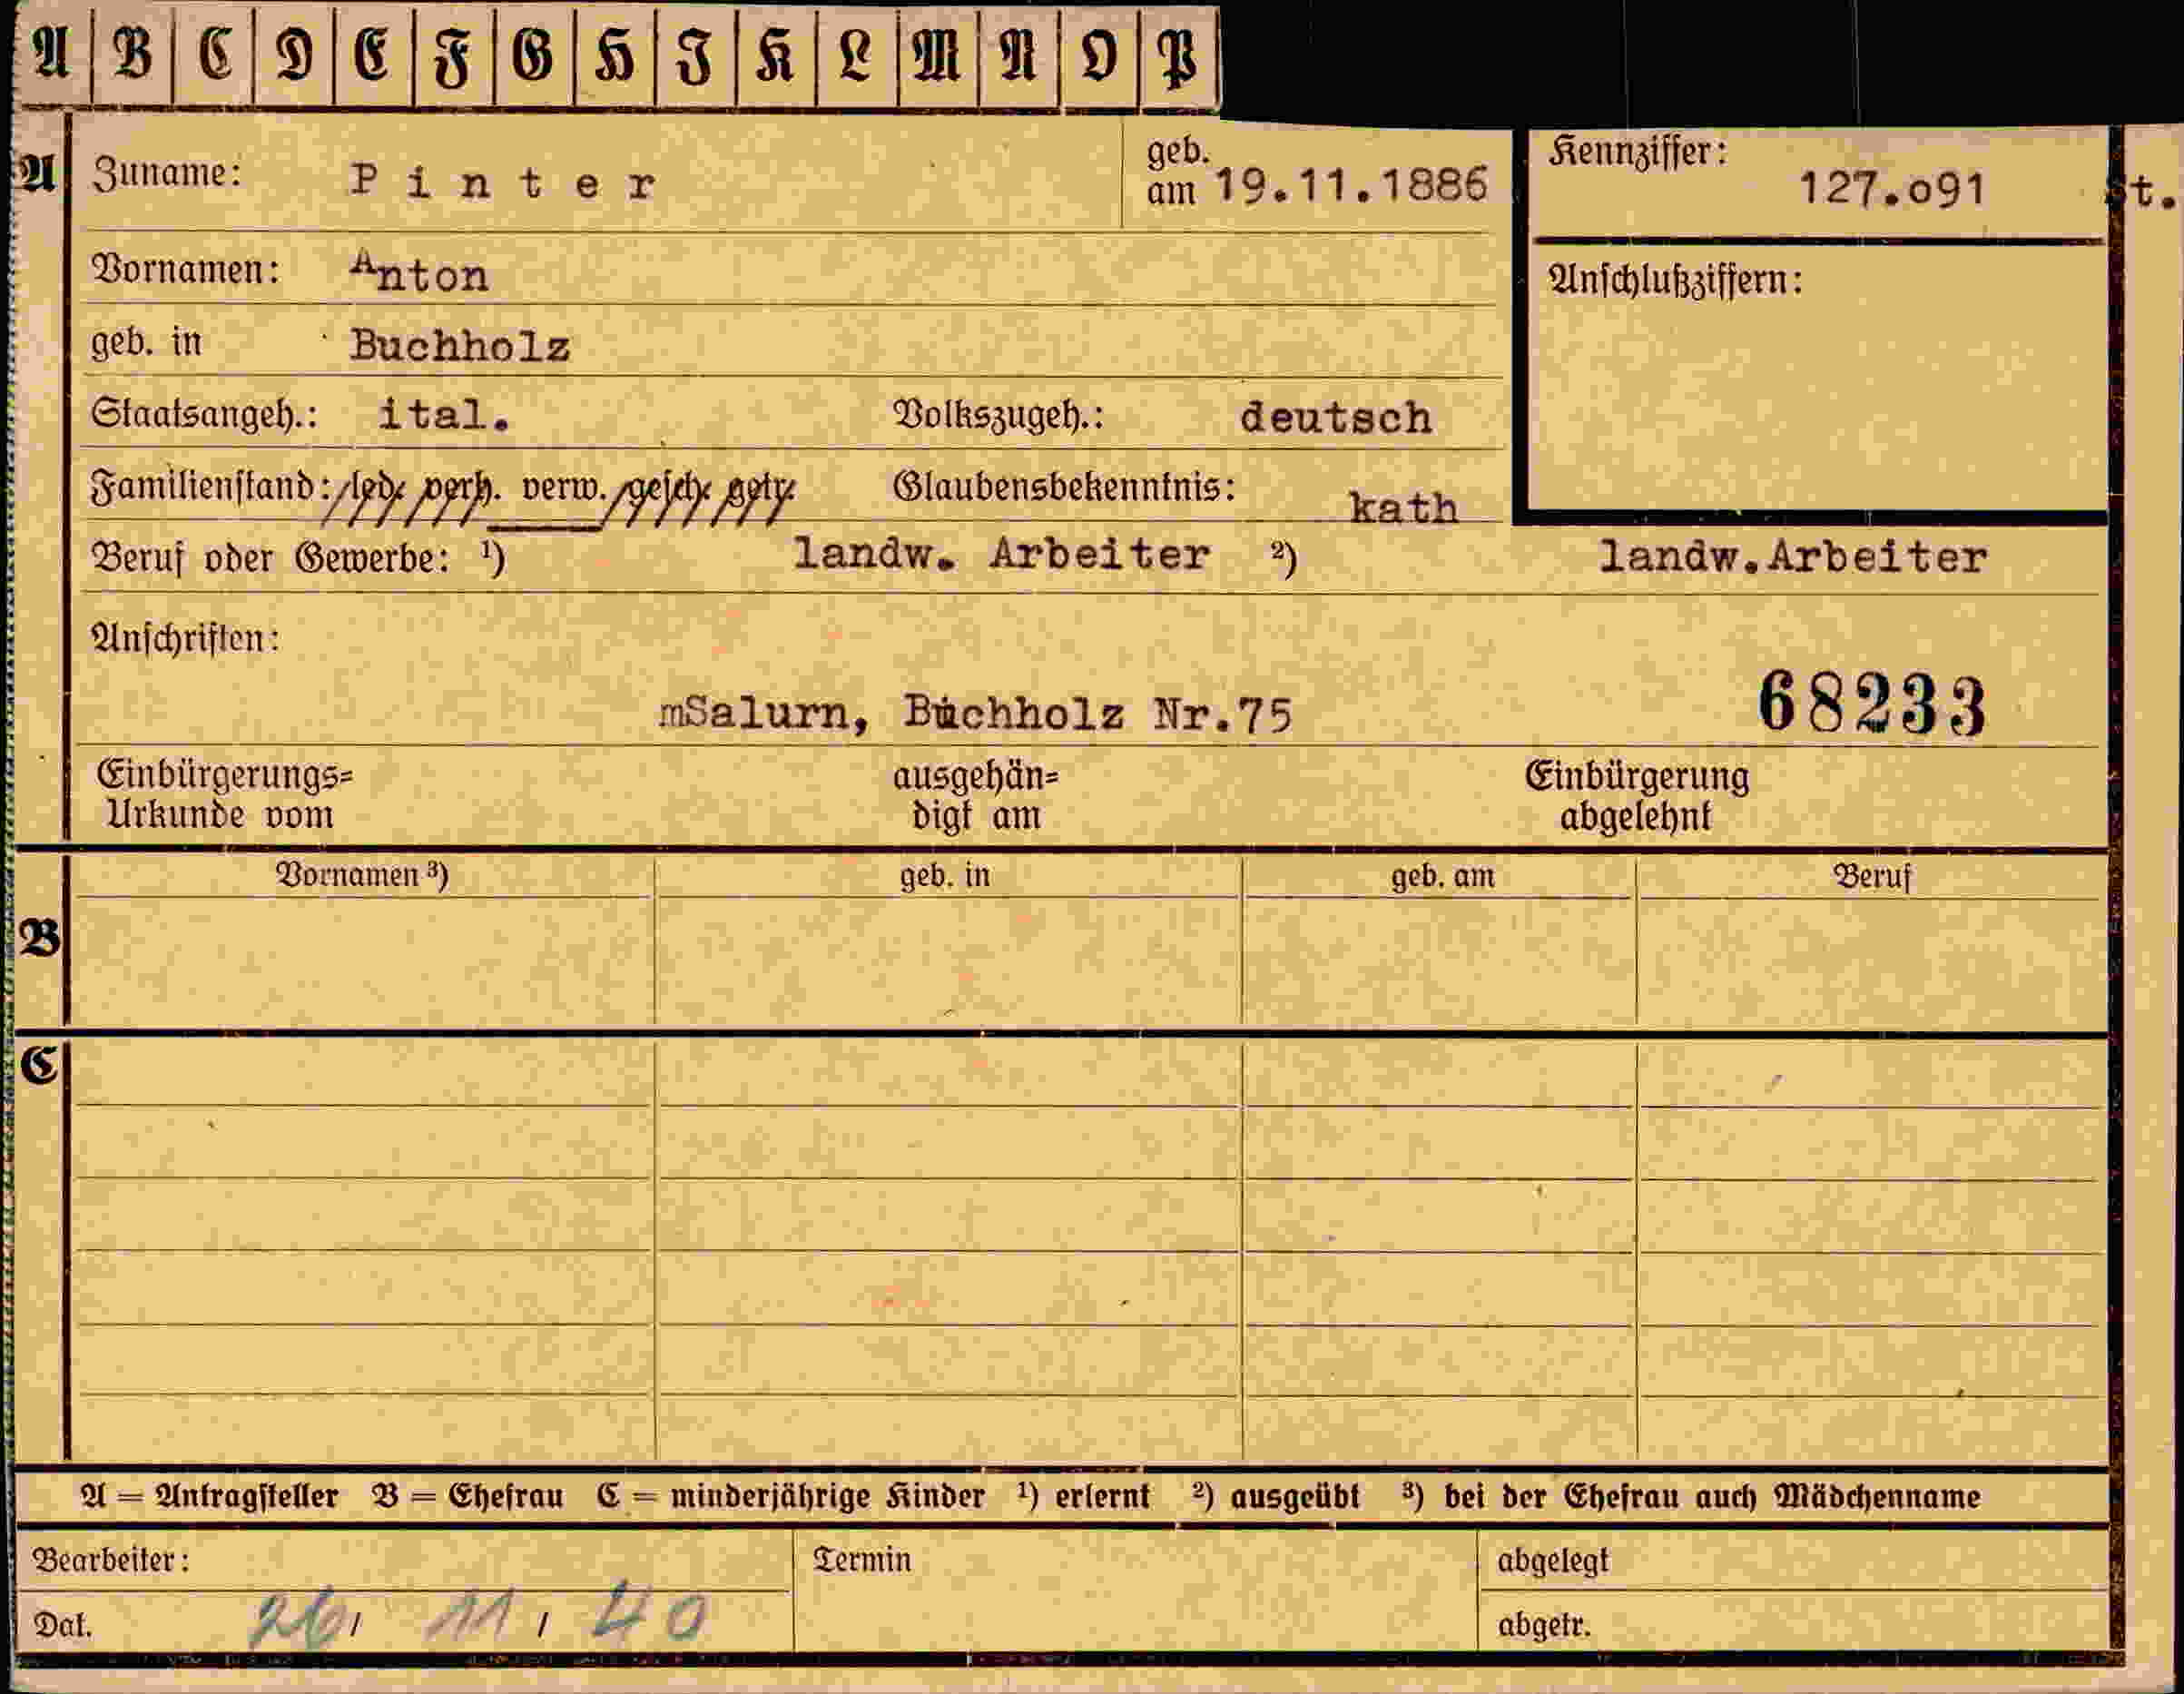 A B C D E F G H I K L M N O P
A Zuname: Pinter geb. am 19.11.1886 Kennziffer: 127.o91 St.
Vornamen: Anton Anschlußziffern:
geb. in Buchholz
Staatsangeh.: ital. Volkszugeh.: deutsch
Familienstand: led. verh. verw. gesch. getr. Glaubensbekenntnis: kath
Beruf oder Gewerbe: ¹) landw. Arbeiter ²) landw.Arbeiter
Anschriften:
mSalurn, Buchholz Nr.75 68233
Einbürgerungs= ausgehän= Einbürgerung
Urkunde vom digt am abgelehnt
Vornamen ³) geb. in geb. am Beruf
B
C
A = Antragsteller B = Ehefrau C = minderjährige Kinder ¹) erlernt ²) ausgeübt ³) bei der Ehefrau auch Mädchenname
Bearbeiter: Termin abgelegt
Dat. 26/ 11/ 40 abgetr.